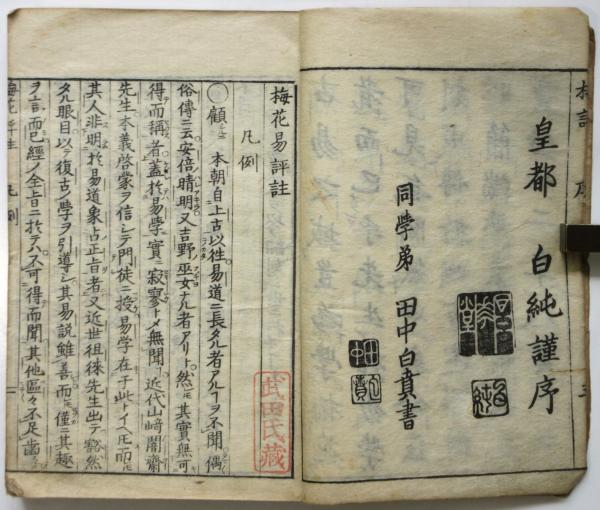 梅註 序 三
皇都 白純謹序
同学弟 田中白賁書
梅花易評註
凡例
○顧ニ本朝自上古以徃易道ニ長タル者アルヿヲ不聞偶
俗傳ニ云安倍晴明又吉野巫女ナル者アリト然𪜈其實無可
得而稱者蓋於易學實ニ寂寥トメ無聞近代山﨑闇齋
先生本義啓蒙ヲ信シテ門徒ニ授易学在于此トイヘ𪜈而
其人非明於易道象占正旨者又近世徂徠先生出テ豁然
タル眼目以テ復古ノ學ヲ引導シ其易説雖善而𪜈僅ニ其趣
ヲ言而已經ノ全旨ニ於テハ不可得而聞其他區々不足齒
武田氏藏
梅花評註 凡例 一